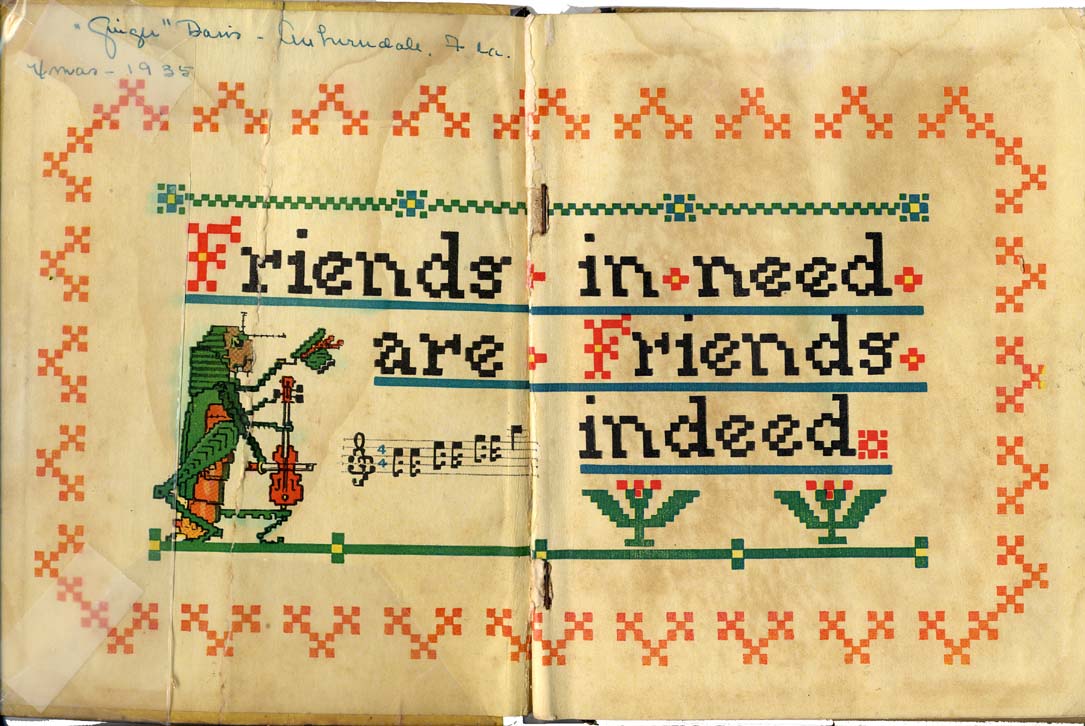 "Ginger" Davis - Auburndale, Fla.
Xmas - 1935
Friends in need
are Friends
indeed
4
4